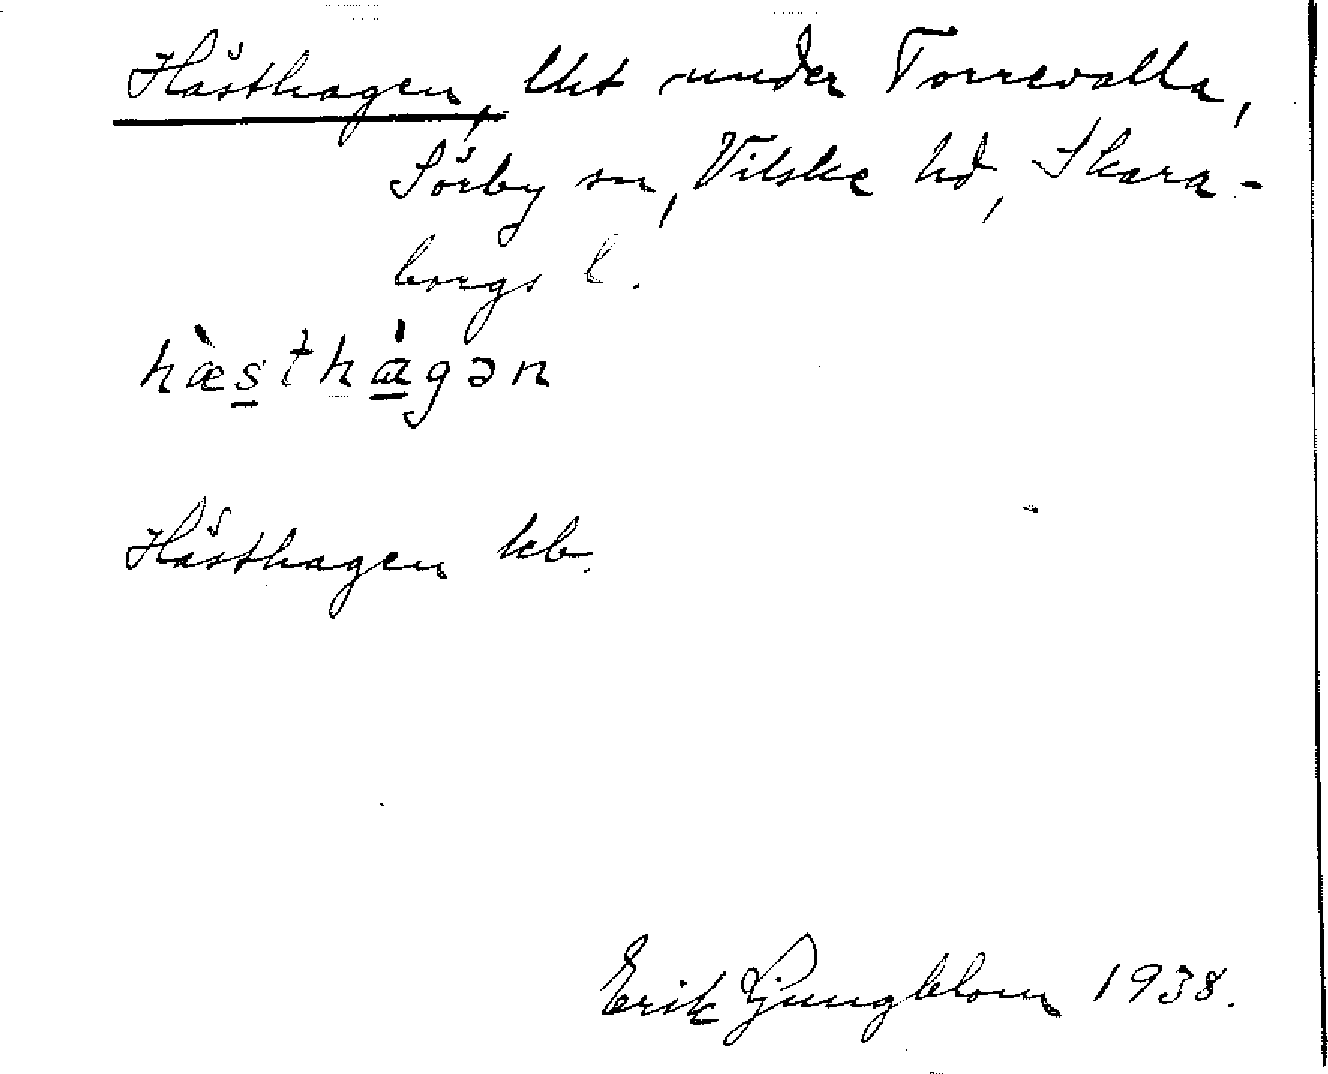 Hästhagen, Uht under Torrevalla,
Sörby sn, Vilske hd, Skara-
borgs l.
hæ̀sthágən
Hästhagen kb.
Erik Ljungblom 1938.